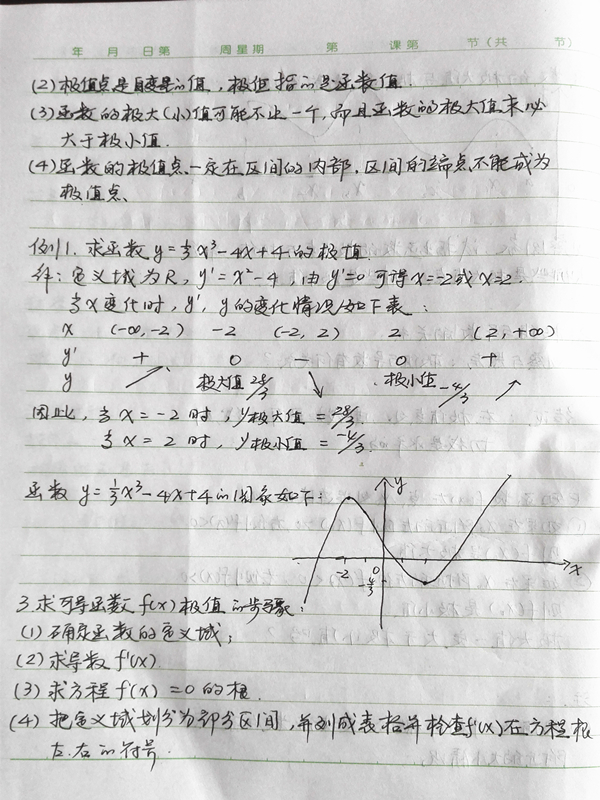 年 月 日第 周星期 第 课第 节(共 节)
(2)极值点是自变量的值，极值指的是函数值.
(3)函数的极大(小)值可能不止一个，而且函数的极大值未必
大于极小值.
(4)函数的极值点一定在区间的内部，区间的端点不能成为
极值点、
例1.求函数 y=⅓x³-4x+4的极值
解：定义域为R, y'=x²-4，由y'=0可得x=-2或x=2.
当x变化时，y'，y的变化情况如下表：
x (-∞,-2) -2 (-2,2) 2 (2,+∞)
y' + 0 - 0 +
y ↗ 极大值28/3 ↘ 极小值-4/3 ↗
因此，当 x=-2 时，y极大值=28/3.
当 x=2 时，y极小值=-4/3.
函数 y=⅓x³-4x+4的图象如下：
y
-2 0 x
-4/3
3.求可导函数f(x)极值的步骤：
(1)确定函数的定义域；
(2)求导数f'(x)
(3)求方程f'(x)=0的根.
(4)把定义域划分为部分区间，并列成表格并检查f'(x)在方程根
左.右的符号.